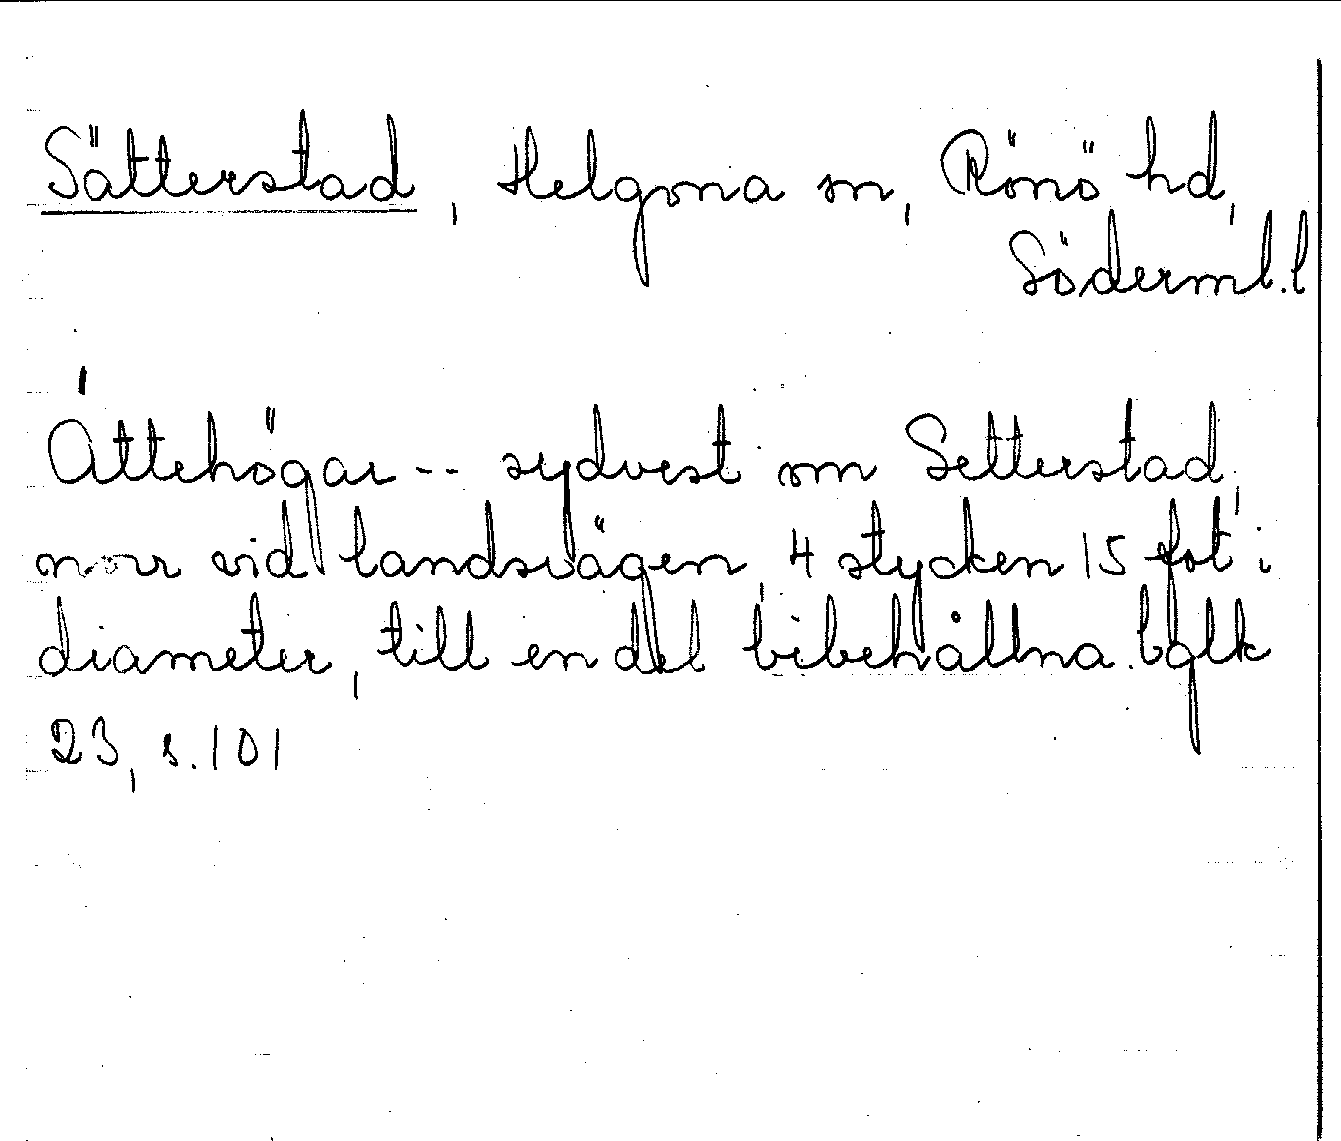 Sätterstad, Helgona sn, Rönö hd,
Söderml. l
Åttehögar -- sydvest om Setterstad,
norr vid landsvägen, 4 stycken 15 fot i
diameter, till en del bibehållna.
23, s. 101